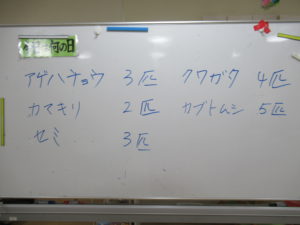 今日は何の日
アゲハチョウ 3匹 クワガタ 4匹
カマキリ 2匹 カブトムシ 5匹
セミ 3匹